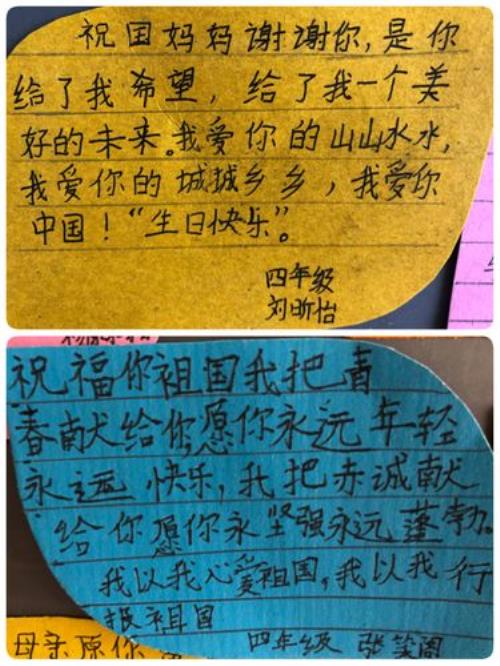 祝国妈妈谢谢你,是你
给了我希望,给了我一个美
好的未来。我爱你的山山水水,
我爱你的城城乡乡,我爱你
中国!“生日快乐”。
四年级
刘昕怡
祝福你祖国我把青
春献给你,愿你永远年轻
永远快乐,我把赤诚献
给你愿你永坚强永远蓬勃。
我以我心爱祖国,我以我行
报祖国
四年级 张笑阁
母亲原你